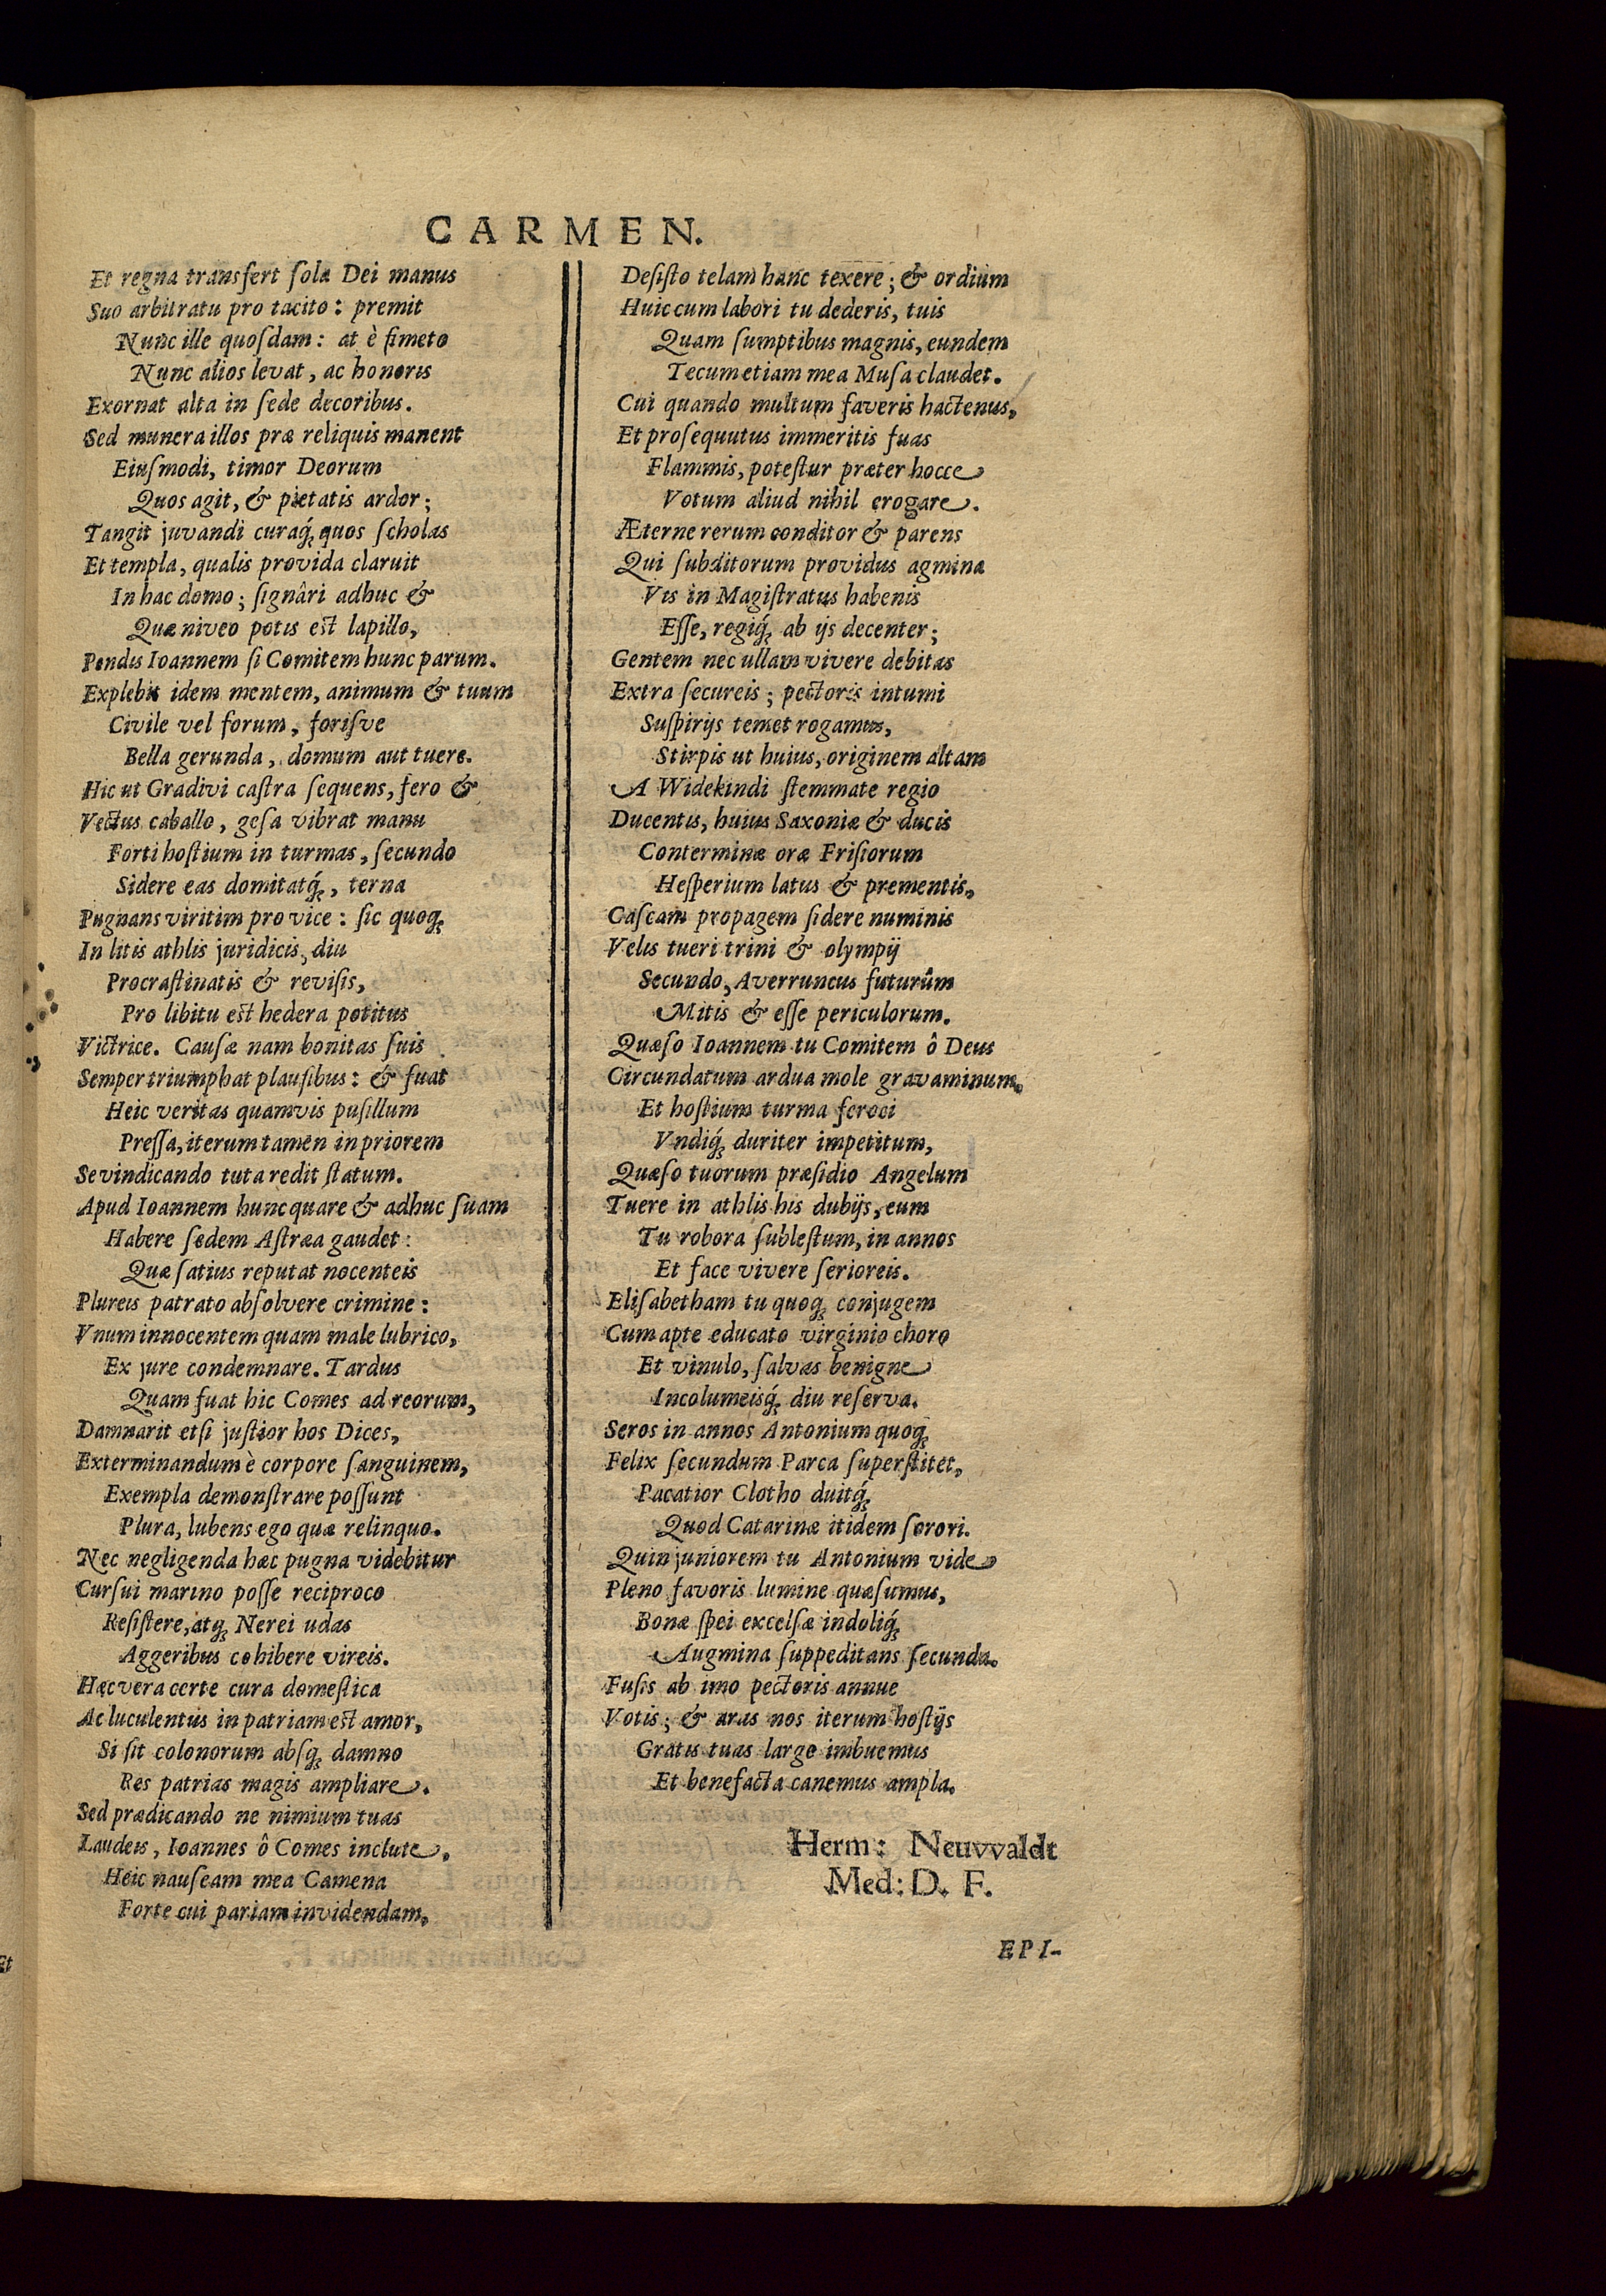 CARMEN.
Et regna transfert ſola Dei manus
Suo arbitratu pro tacito: premit
Nunc ille quoſdam: at è fimeto
Nunc alios levat, ac honoris
Exornat alta in ſede decoribus.
Sed munera illos præ reliquis manent
Eiuſmodi, timor Deorum
Quos agit, & pietatis ardor;
Tangit juvandi curaq́; quos ſcholas
Et templa, qualis provida claruit
In hac domo; ſignâri adhuc &
Quæ niveo potis est lapillo,
Pendis Ioannem ſi Comitem hunc parum.
Explebit idem mentem, animum & tuum
Civile vel forum, foriſve
Bella gerunda, domum aut tuere.
Hic ut Gradivi caſtra ſequens, fero &
Vectus caballo, geſa vibrat manu
Forti hoſtium in turmas, ſecundo
Sidere eas domitatq́;, terna
Pugnans viritim pro vice: ſic quoq;
In litis athlis juridicis, diu
Procraſtinatis & reviſis,
Pro libitu est hedera potitus
Victrice. Cauſæ nam bonitas ſuis
Semper triumphat plauſibus: & fuat
Heic veritas quamvis puſillum
Preſſa, iterum tamen in priorem
Se vindicando tuta redit ſtatum.
Apud Ioannem hunc quare & adhuc ſuam
Habere ſedem Aſtræa gaudet:
Quæ ſatius reputat nocenteis
Plureis patrato abſolvere crimine:
Vnum innocentem quam male lubrico,
Ex jure condemnare. Tardus
Quam fuat hic Comes ad reorum,
Damnarit etſi juſtior hos Dices,
Exterminandum è corpore ſanguinem,
Exempla demonſtrare poſſunt
Plura, lubens ego quæ relinquo.
Nec negligenda hæc pugna videbitur
Curſui marino poſſe reciproco
Reſiſtere, atq; Nerei udas
Aggeribus cohibere vireis.
Hæc vera certe cura domeſtica
Ac luculentus in patriam est amor,
Si ſit colonorum abſq; damno
Res patrias magis ampliare.
Sed prædicando ne nimium tuas
Laudeis, Ioannes ô Comes inclute,
Heic nauſeam mea Camena
Forte cui pariam invidendam,
Deſiſto telam hanc texere; & ordium
Huic cum labori tu dederis, tuis
Quam ſumptibus magnis, eundem
Tecum etiam mea Muſa claudet.
Cui quando multum faveris hactenus,
Et proſequutus immeritis fuas
Flammis, poteſtur præter hocce
Votum aliud nihil erogare.
Æterne rerum conditor & parens
Qui ſubditorum providus agmina
Vis in Magiſtratus habenis
Eſſe, regiq́; ab ijs decenter;
Gentem nec ullam vivere debitas
Extra ſecureis; pectoris intumi
Suſpirijs temet rogamus,
Stirpis ut huius, originem altam
A Widekindi ſtemmate regio
Ducentis, huius Saxoniæ & ducis
Conterminæ oræ Friſiorum
Heſperium latus & prementis,
Caſcam propagem ſidere numinis
Velis tueri trini & olympij
Secundo, Averruncus futurûm
Mitis & eſſe periculorum.
Quæſo Ioannem tu Comitem ô Deus
Circundatum ardua mole gravaminum,
Et hoſtium turma feroci
Vndiq́; duriter impetitum,
Quæſo tuorum præſidio Angelum
Tuere in athlis his dubijs, eum
Tu robora ſubleſtum, in annos
Et face vivere ſerioreis.
Eliſabetham tu quoq; conjugem
Cum apte educato virginio choro
Et vinulo, ſalvas benigne
Incolumeisq́; diu reſerva.
Seros in annos Antonium quoq;
Felix ſecundum Parca ſuperſtitet,
Pacatior Clotho duitq́;
Quod Catarinæ itidem ſorori.
Quin juniorem tu Antonium vide
Pleno favoris lumine quæſumus,
Bonæ ſpei excelſæ indoliq́;
Augmina ſuppeditans ſecunda.
Fuſis ab imo pectoris annue
Votis; & aras nos iterum hoſtijs
Gratis tuas large imbuemus
Et benefacta canemus ampla.
Herm: Neuvvaldt
Med: D. F.
EPI-
Et